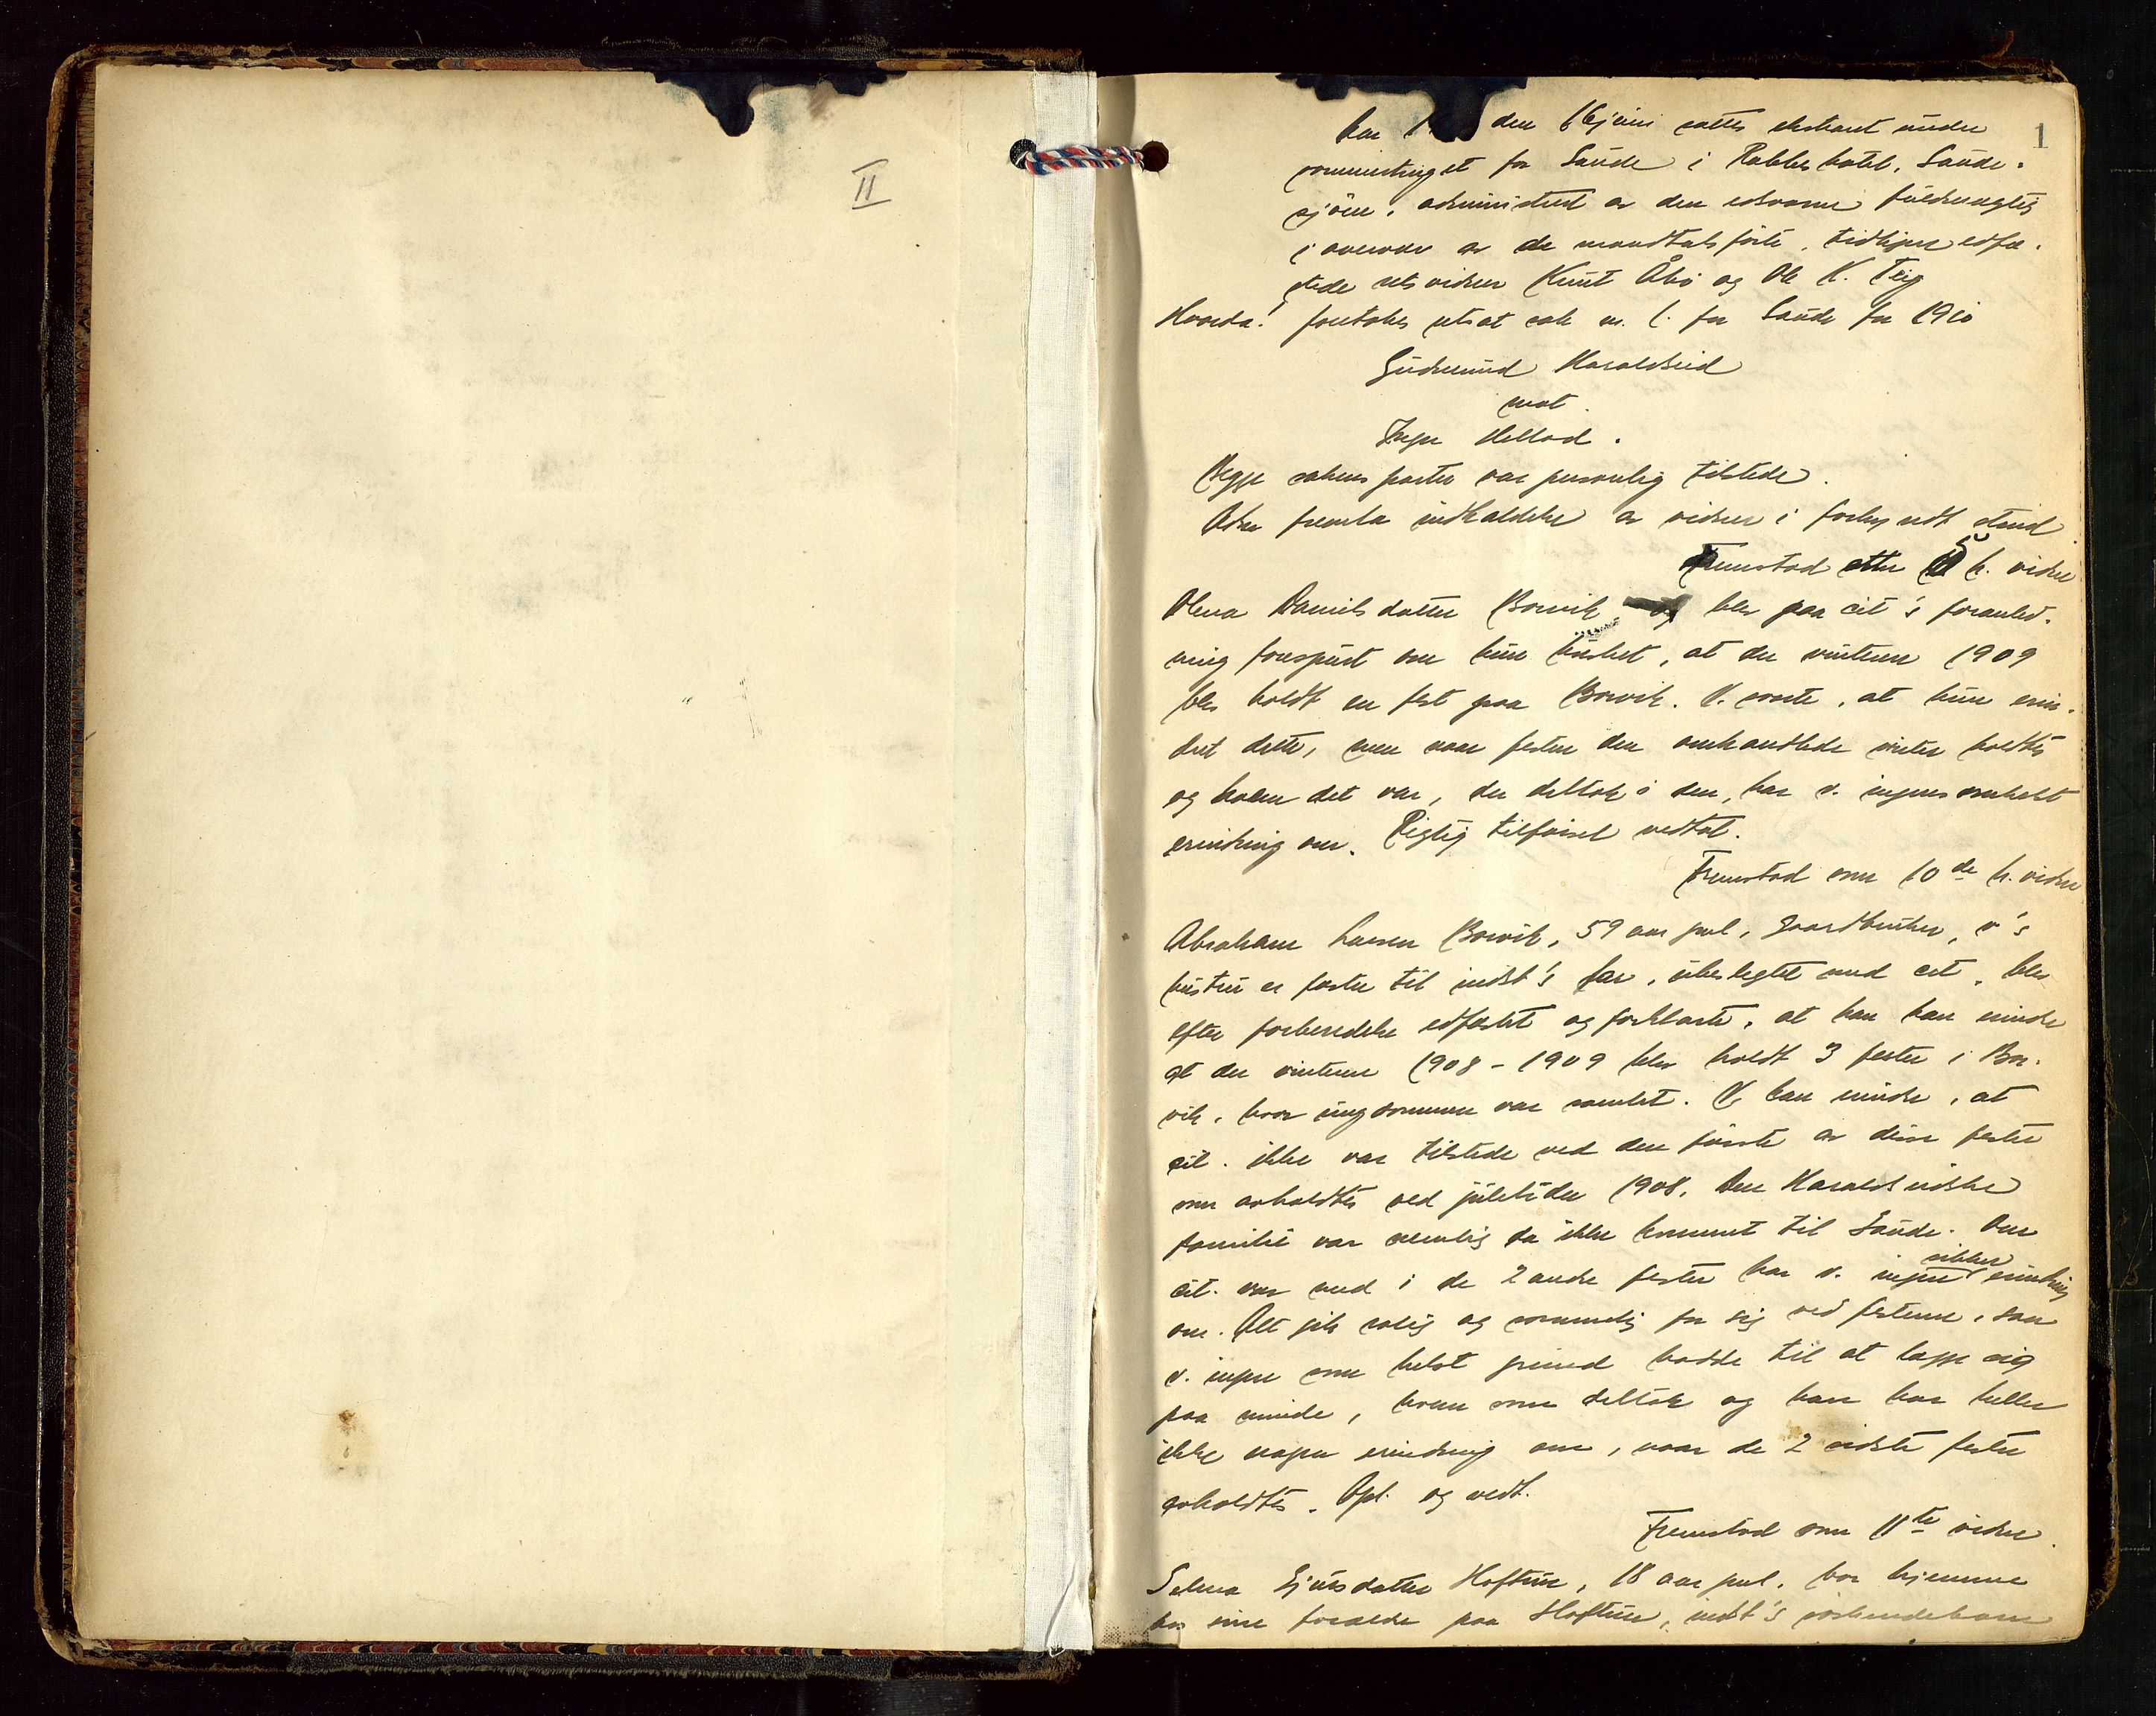 II
1
Aar 1 den 16 juni sattes ekstraret under
sommertinget for Saude i Rabbes hotel, Saude-
sjøen, administrert av den edsvorne fuldmægtig
i overvær av de mandtalsførte, tidligere edfæ-
stede retsvidner Knut Åbø og Ole K. Teig
Hvorda: foretokes utsat sak nr. 1. for Saude for 1910
Gudmund Haraldseid
mot
Inger Helland.
Begge sakens parter var personlig tilstede.
Aden fremla indkaldelse av vidner i forkyndt stand.
Fremstod etter h. vidne
Olena Danielsdatter Borvik og blev paa cit's foranled-
ning forespurt om hun husket, at der vinteren 1909
blev holdt en fest paa Borvik. V. svarte, at hun erin-
dret dette, men naar festen den omhandlede vinter holdtes
og hvem det var, der deltok i den, har v. ingensomhelst
erindring om. Rigtig tilført vedtat.
Fremstod som 10de h. vidne
Abraham Larsen Borvik, 59 aar gml, gaardbruker, v's
hustru er søster til indst's far, ubeslegtet med cit, blev
efter forberedelse edfæstet og forklarte, at han kan minde
at der vinteren 1908-1909 blev holdt 3 fester i Bor-
vik, hvor ungdommen var samlet. V. kan minde, at
cit. ikke var tilstede ved den første av disse fester
som avholdtes ved juletider 1908. Den Haraldseidske
familie var nemlig da ikke kommet til Saude. Om
cit. var med i de 2 andre fester har v. ingen sikker erindring
om. Alt gik rolig og sømmelig for sig ved festerne, saa
v. ingen som helst grund hadde til at lægge sig
paa minde, hvem som deltok og han har heller
ikke nogen erindring om, naar de 2 sidste fester
avholdtes. Opl. og vedt.
Fremstod som 11te vidne
Selma Sjursdatter Hoftun, 18 aar gml. bor hjemme
hos sine forældre paa Hoftun, indst's søskendebarn